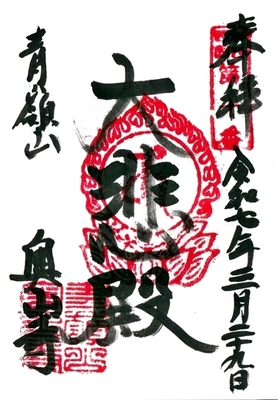 奉拝　令和七年三月二十九日
大悲殿
青嶺山
奥山寺